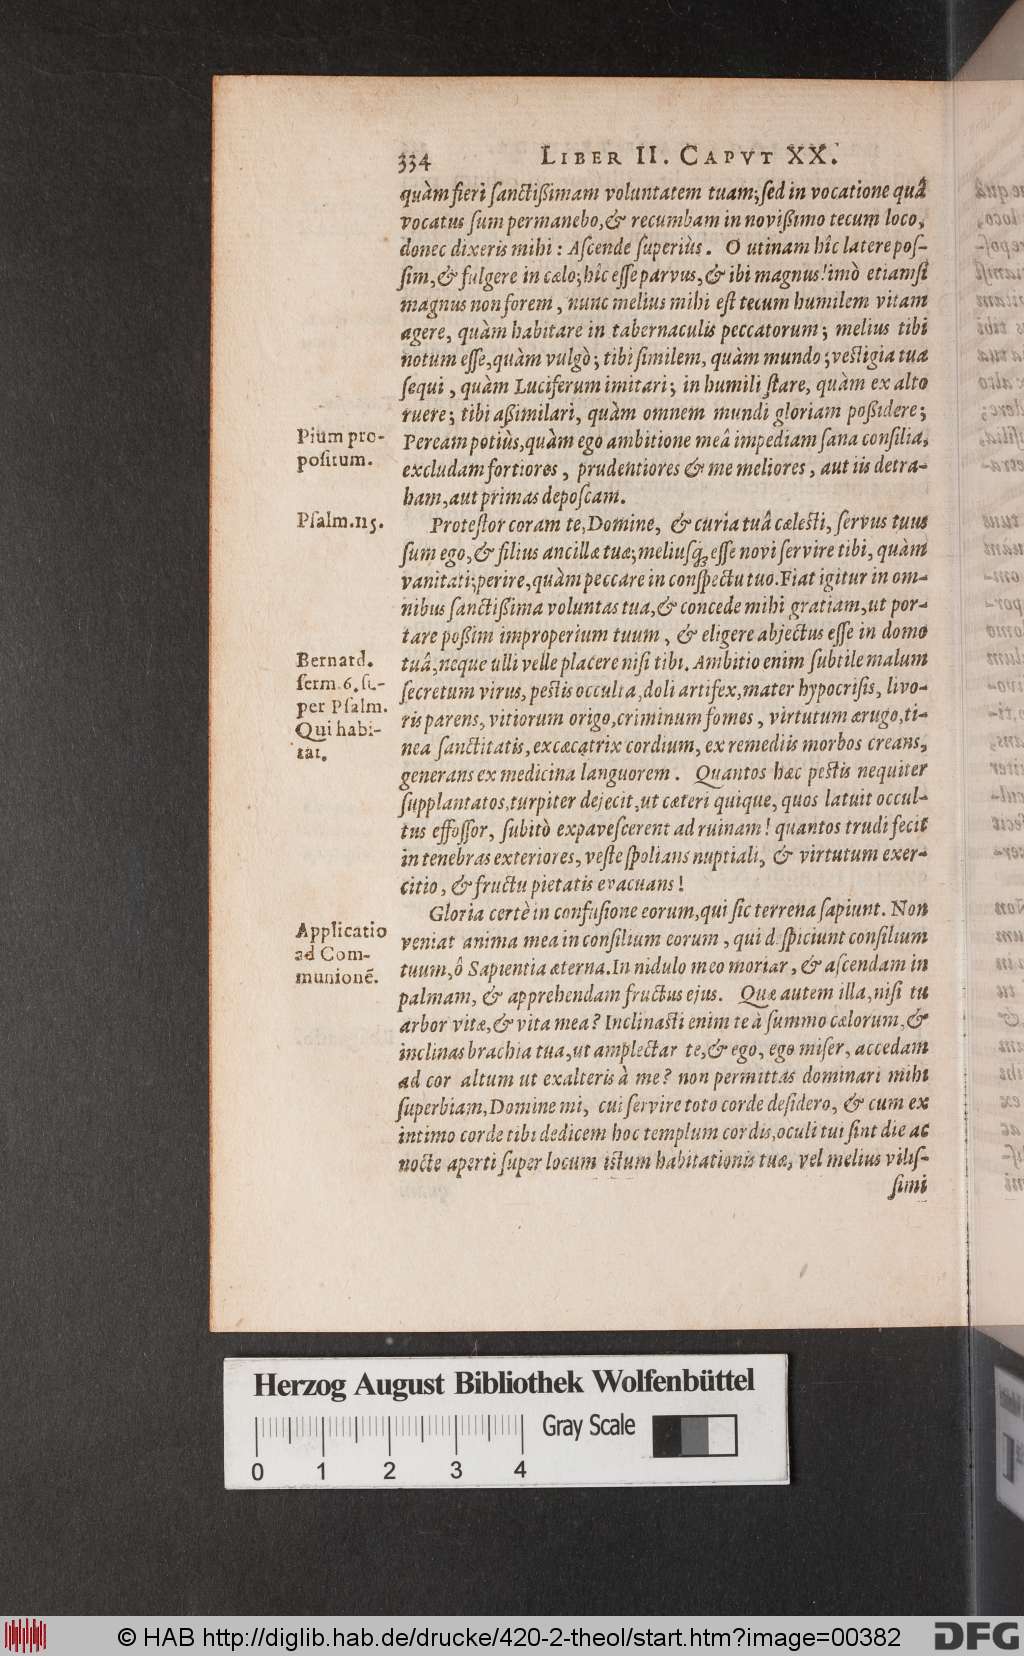 334 LIBER II. CAPVT XX.
quàm fieri ſanctiſsimam voluntatem tuam; ſed in vocatione quâ
vocatus ſum permanebo, & recumbam in noviſsimo tecum loco,
donec dixeris mihi: Aſcende ſuperiùs. O utinam hîc latere poſ-
ſim, & fulgere in cælo; hîc eſſe parvus, & ibi magnus! imò etiamſi
magnus non forem, nunc melius mihi eſt tecum humilem vitam
agere, quàm habitare in tabernaculis peccatorum; melius tibi
notum eſſe, quàm vulgò; tibi ſimilem, quàm mundo; veſtigia tua
ſequi, quàm Luciferum imitari; in humili ſtare, quàm ex alto
ruere; tibi aſsimilari, quàm omnem mundi gloriam poſsidere;
Pium pro-
poſitum.
Peream potiùs, quàm ego ambitione meâ impediam ſana conſilia,
excludam fortiores, prudentiores & me meliores, aut iis detra-
ham, aut primas depoſcam.
Pſalm. 115.
Proteſtor coram te, Domine, & curia tuâ cæleſti, ſervus tuus
ſum ego, & filius ancillæ tuæ; meliuſq; eſſe novi ſervire tibi, quàm
vanitati; perire, quàm peccare in conſpectu tuo. Fiat igitur in om-
nibus ſanctiſsima voluntas tua, & concede mihi gratiam, ut por-
tare poſsim improperium tuum, & eligere abjectus eſſe in domo
Bernard.
ſerm. 6. ſu-
per Pſalm.
Qui habi-
tat.
tuâ, neque ulli velle placere niſi tibi. Ambitio enim ſubtile malum
ſecretum virus, peſtis occulta, doli artifex, mater hypocriſis, livo-
ris parens, vitiorum origo, criminum fomes, virtutum ærugo, ti-
nea ſanctitatis, excæcatrix cordium, ex remediis morbos creans,
generans ex medicina languorem. Quantos hæc peſtis nequiter
ſupplantatos, turpiter dejecit, ut cæteri quique, quos latuit occul-
tus effoſſor, ſubitò expaveſcerent ad ruinam! quantos trudi fecit
in tenebras exteriores, veſte ſpolians nuptiali, & virtutum exer-
citio, & fructu pietatis evacuans!
Gloria certè in confuſione eorum, qui ſic terrena ſapiunt. Non
Applicatio
ad Com-
munionē.
veniat anima mea in conſilium eorum, qui deſpiciunt conſilium
tuum, ô Sapientia æterna. In nidulo meo moriar, & aſcendam in
palmam, & apprehendam fructus ejus. Quæ autem illa, niſi tu
arbor vitæ, & vita mea? Inclinaſti enim te à ſummo cælorum, &
inclinas brachia tua, ut amplectar te, & ego, ego miſer, accedam
ad cor altum ut exalteris à me? non permittas dominari mihi
ſuperbiam, Domine mi, cui ſervire toto corde deſidero, & cum ex
intimo corde tibi dedicem hoc templum cordis, oculi tui ſint die ac
nocte aperti ſuper locum iſtum habitationis tuæ, vel melius viliſ-
ſimi
Herzog August Bibliothek Wolfenbüttel
Gray Scale
0 1 2 3 4
© HAB http://diglib.hab.de/drucke/420-2-theol/start.htm?image=00382
DFG